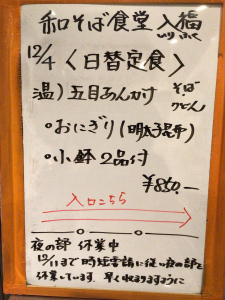 和そば食堂 入福
12/4 〈日替定食〉
温) 五目あんかけ そば うどん
・おにぎり(明太子昆布)
・小鉢2品付
¥850.-
入口こちら
夜の部 休業中
12/11まで 時短要請に従い夜の部を
休業しています。早く収まりますように